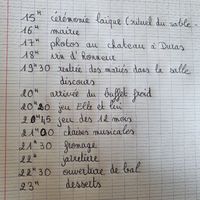 15H cérémonie laïque (rituel du sable
16H mairie
17H photos au chateau à Duras
18H vin d'honneur
19H30 rentrée des mariés dans la salle
discours
20H arrivée du buffet froid
20H20 jeu Elle et lui
20H45 jeu des 12 mois
21H00 chaises musicales
21H30 fromage
22H jarretière
22H30 ouverture de bal
23H desserts